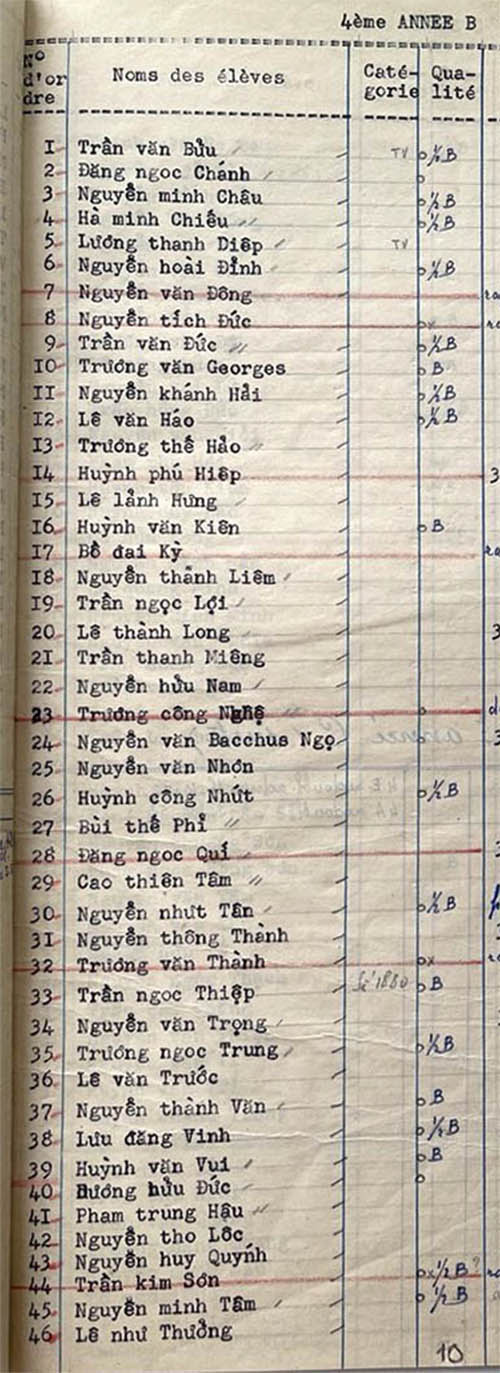 4ème ANNEE B
N° d'or dre Noms des élèves Caté- gorie Qua- lité
1 Trần văn Bửu TV ½ B
2 Đăng ngoc Chánh
3 Nguyễn minh Châu ½ B
4 Hà minh Chiếu ½ B
5 Lương thanh Diêp TV
6 Nguyễn hoài Đỉnh ½ B
7 Nguyễn văn Đông
8 Nguyễn tích Đức x
9 Trần văn Đức ½ B
10 Trương văn Georges B
11 Nguyễn khánh Hải ½ B
12 Lê văn Háo ½ B
13 Trương thế Hảo
14 Huỳnh phú Hiêp 3
15 Lê lảnh Hưng
16 Huỳnh văn Kiên B
17 Bồ đai Kỳ
18 Nguyễn thành Liêm
19 Trần ngọc Lợi
20 Lê thành Long 3
21 Trần thanh Miêng
22 Nguyễn hửu Nam
23 Trương công Nghệ
24 Nguyễn văn Bacchus Ngọ 3
25 Nguyễn văn Nhơn
26 Huỳnh công Nhứt ½ B
27 Bùi thế Phỉ
28 Đăng ngoc Quí
29 Cao thiên Tâm
30 Nguyễn nhưt Tân ½ B
31 Nguyễn thông Thành
32 Trương văn Thành x
33 Trần ngoc Thiệp 1880 B
34 Nguyễn văn Trọng
35 Trương ngoc Trung ½ B
36 Lê văn Trước
37 Nguyễn thành Văn B
38 Lưu đăng Vinh ½ B
39 Huỳnh văn Vui B
40 Dương hửu Đức
41 Pham trung Hậu
42 Nguyễn tho Lôc
43 Nguyễn huy Quýnh
44 Trần kim Sơn x ½ B ?
45 Nguyễn minh Tâm ½ B
46 Lê như Thưởng
10